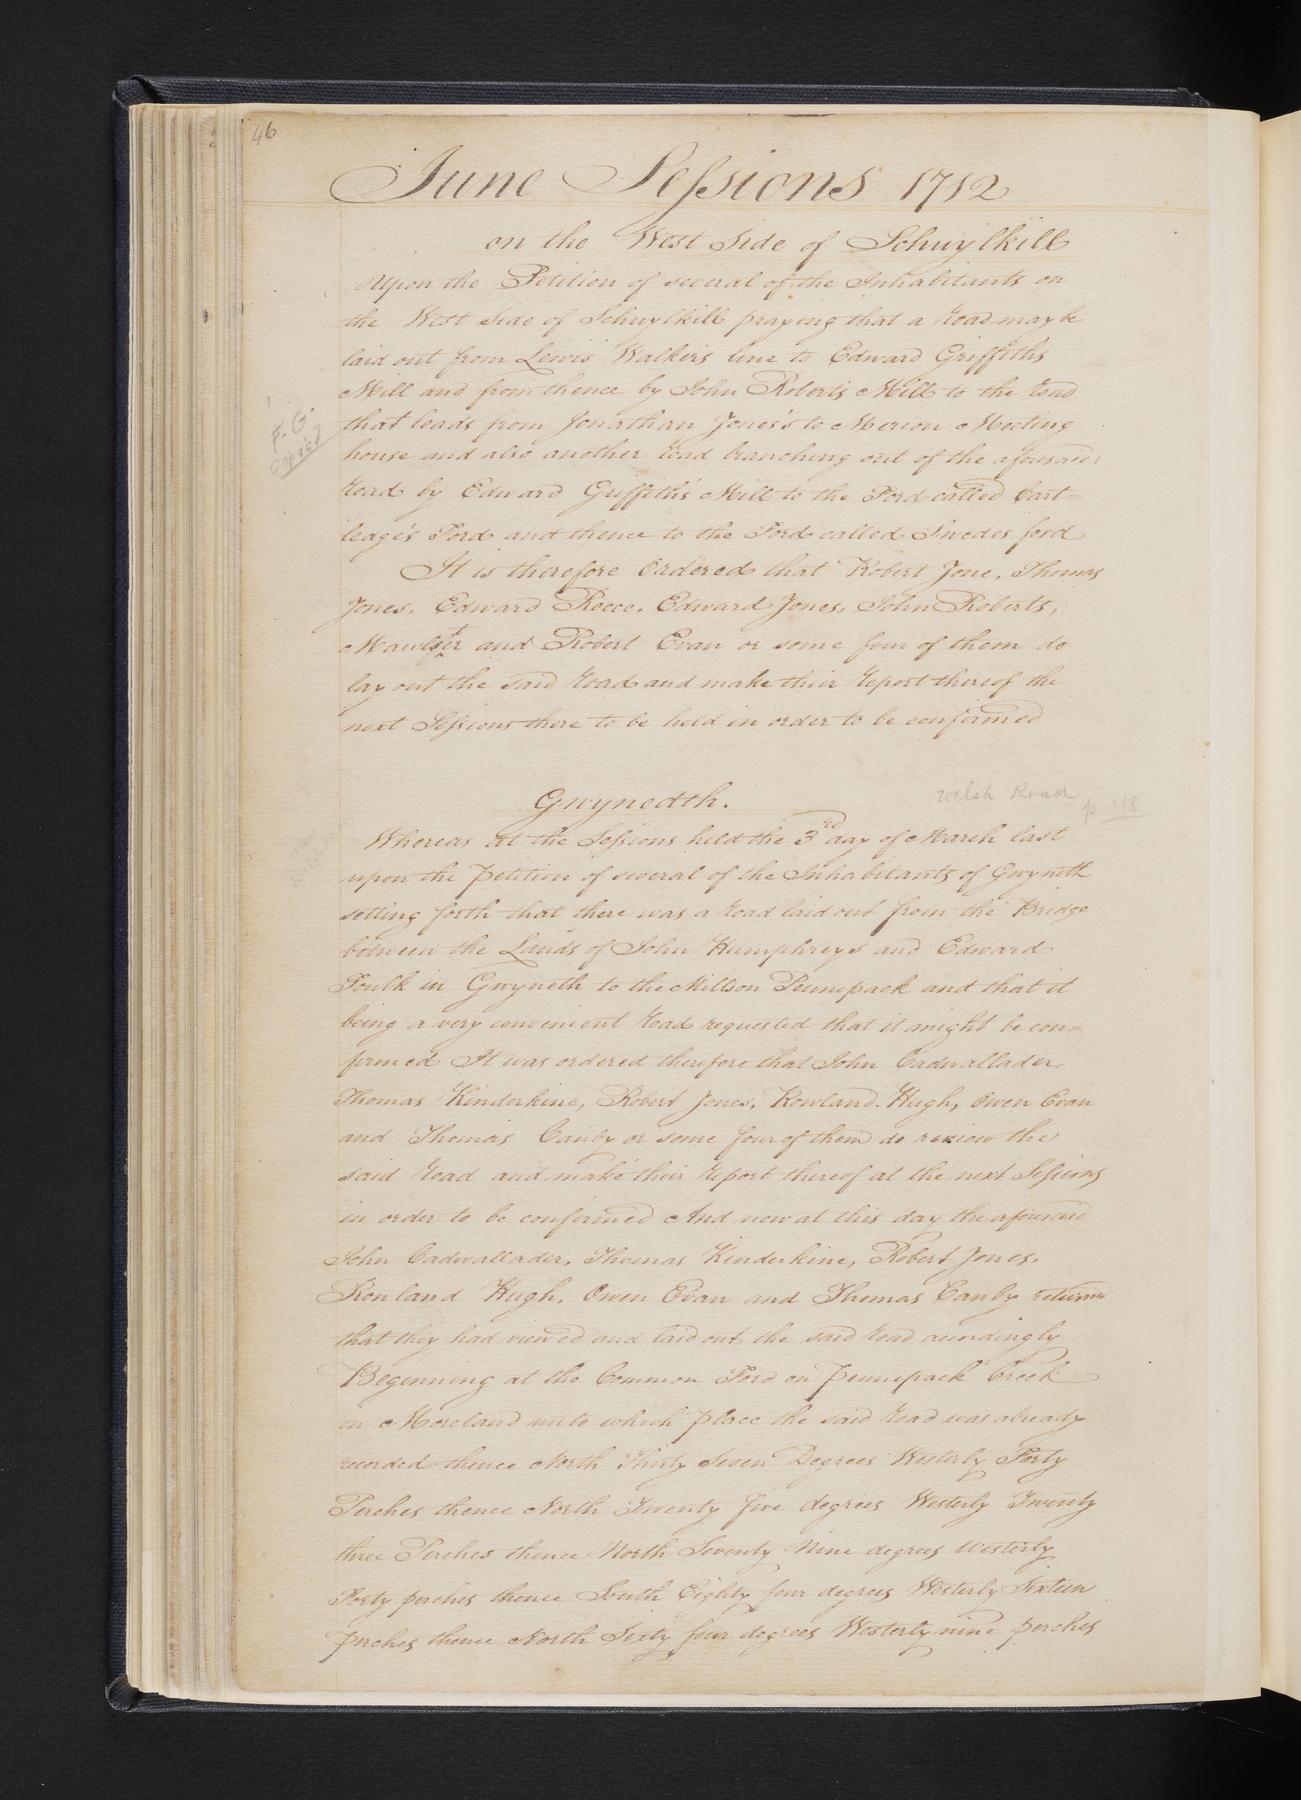 46
June Sessions 1712
on the West Side of Schuylkill
Upon the Petition of several of the Inhabitants on
the West Side of Schuylkill praying that a Road may be
laid out from Lewis Walkers line to Edward Griffiths
Mill and from thence by John Roberts Mill to the Road
that leads from Jonathan Jones's to Merion Meeting
house and also another Road branching out of the aforesaid
Road by Edward Griffith's Mill to the Ford called Cart=
ledge's Ford and thence to the Ford called Swedes ford
It is therefore Ordered that Robert Jone, Thomas
Jones, Edward Reece, Edward Jones, John Roberts,
and Robert Evan or some four of them do
lay out the said Road and make their Report thereof the
next Sessions there to be held in order to be confirmed
F. G.
copied
Gwynedth.
Welsh Road
p 48
Whereas at the Sessions held the 3rd day of March last
upon the Petition of several of the Inhabitants of Gwyneth
setting forth that there was a Road laid out from the Bridge
between the Lands of John Humphreys and Edward
Foulk in Gwyneth to the Mills on Pennepack and that it
being a very convenient Road requested that it might be con=
firmed It was ordered therefore that John Cadwallader
Thomas Kinderkine, Robert Jones, Rowland Hugh, Owen Evan
and Thomas Canby or some four of them do review the
said Road and make their Report thereof at the next Sessions
in order to be confirmed And now at this day the aforesaid
John Cadwallader, Thomas Kinderkine, Robert Jones,
Rowland Hugh, Owen Evan and Thomas Canby return
that they had viewed and laid out the said Road accordingly
Beginning at the Common Ford on Pennepack Creek
in Moreland unto which place the said Road was already
recorded thence North Thirty Seven Degrees Westerly Forty
Perches thence North Twenty five degrees Westerly Twenty
three Perches thence North Seventy Nine degrees Westerly
Forty perches thence South Eighty four degrees Westerly Sixteen
perches thence North Sixty four degrees Westerly nine perches